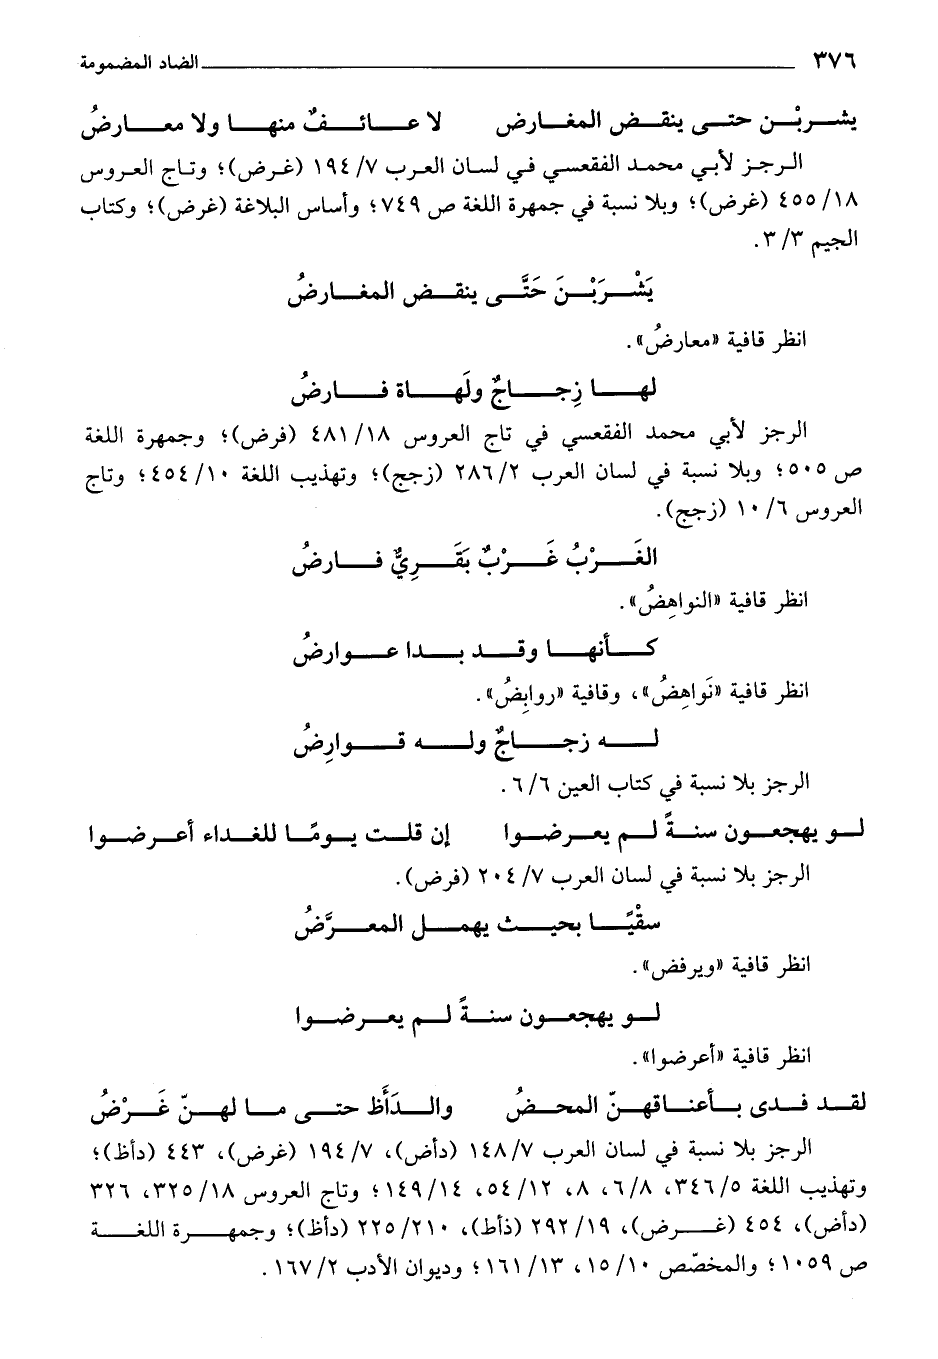 ٣٧٦ الضاد المضمومة
يشربْن حتى ينقض المغارض لا عائفٌ منها ولا معارضُ
الرجز لأبي محمد الفقعسي في لسان العرب ٧/ ١٩٤ (غرض)؛ وتاج العروس
١٨/ ٤٥٥ (غرض)؛ وبلا نسبة في جمهرة اللغة ص ٧٤٩؛ وأساس البلاغة (غرض)؛ وكتاب
الجيم ٣/ ٣.
يَشْرَبْنَ حَتَّى ينقض المغارضُ
انظر قافية «معارضُ».
لها زِجاجٌ ولَهاة فارضُ
الرجز لأبي محمد الفقعسي في تاج العروس ١٨/ ٤٨١ (فرض)؛ وجمهرة اللغة
ص ٥٠٥؛ وبلا نسبة في لسان العرب ٢/ ٢٨٦ (زجج)؛ وتهذيب اللغة ١٠/ ٤٥٤؛ وتاج
العروس ٦/ ١٠ (زجج).
الغَرْبُ غَرْبٌ بَقَرِيٌّ فارضُ
انظر قافية «النواهِضُ».
كأنها وقد بدا عوارضُ
انظر قافية «نَواهِضُ»، وقافية «روابِضُ».
له زجاجٌ وله قوارِضُ
الرجز بلا نسبة في كتاب العين ٦/ ٦.
لو يهجعون سنةً لم يعرضوا إن قلت يومًا للغداء أعرضوا
الرجز بلا نسبة في لسان العرب ٧/ ٢٠٤ (فرض).
سقْيًا بحيث يهمل المعرَّضُ
انظر قافية «ويرفض».
لو يهجعون سنةً لم يعرضوا
انظر قافية «أعرضوا».
لقد فدى بأعناقهنّ المحضُ والدَأَظ حتى ما لهنّ غَرْضُ
الرجز بلا نسبة في لسان العرب ٧/ ١٤٨ (دأض)، ٧/ ١٩٤ (غرض)، ٤٤٣ (دأظ)؛
وتهذيب اللغة ٥/ ٣٤٦، ٨/ ٦، ٨، ١٢/ ٥٤، ١٤/ ١٤٩؛ وتاج العروس ١٨/ ٣٢٥، ٣٢٦
(دأض)، ٤٥٤ (غرض)، ١٩/ ٢٩٢ (ذأط)، ٢١٠/ ٢٢٥ (دأظ)؛ وجمهرة اللغة
ص ١٠٥٩؛ والمخصّص ١٠/ ١٥، ١٣/ ١٦١؛ وديوان الأدب ٢/ ١٦٧.